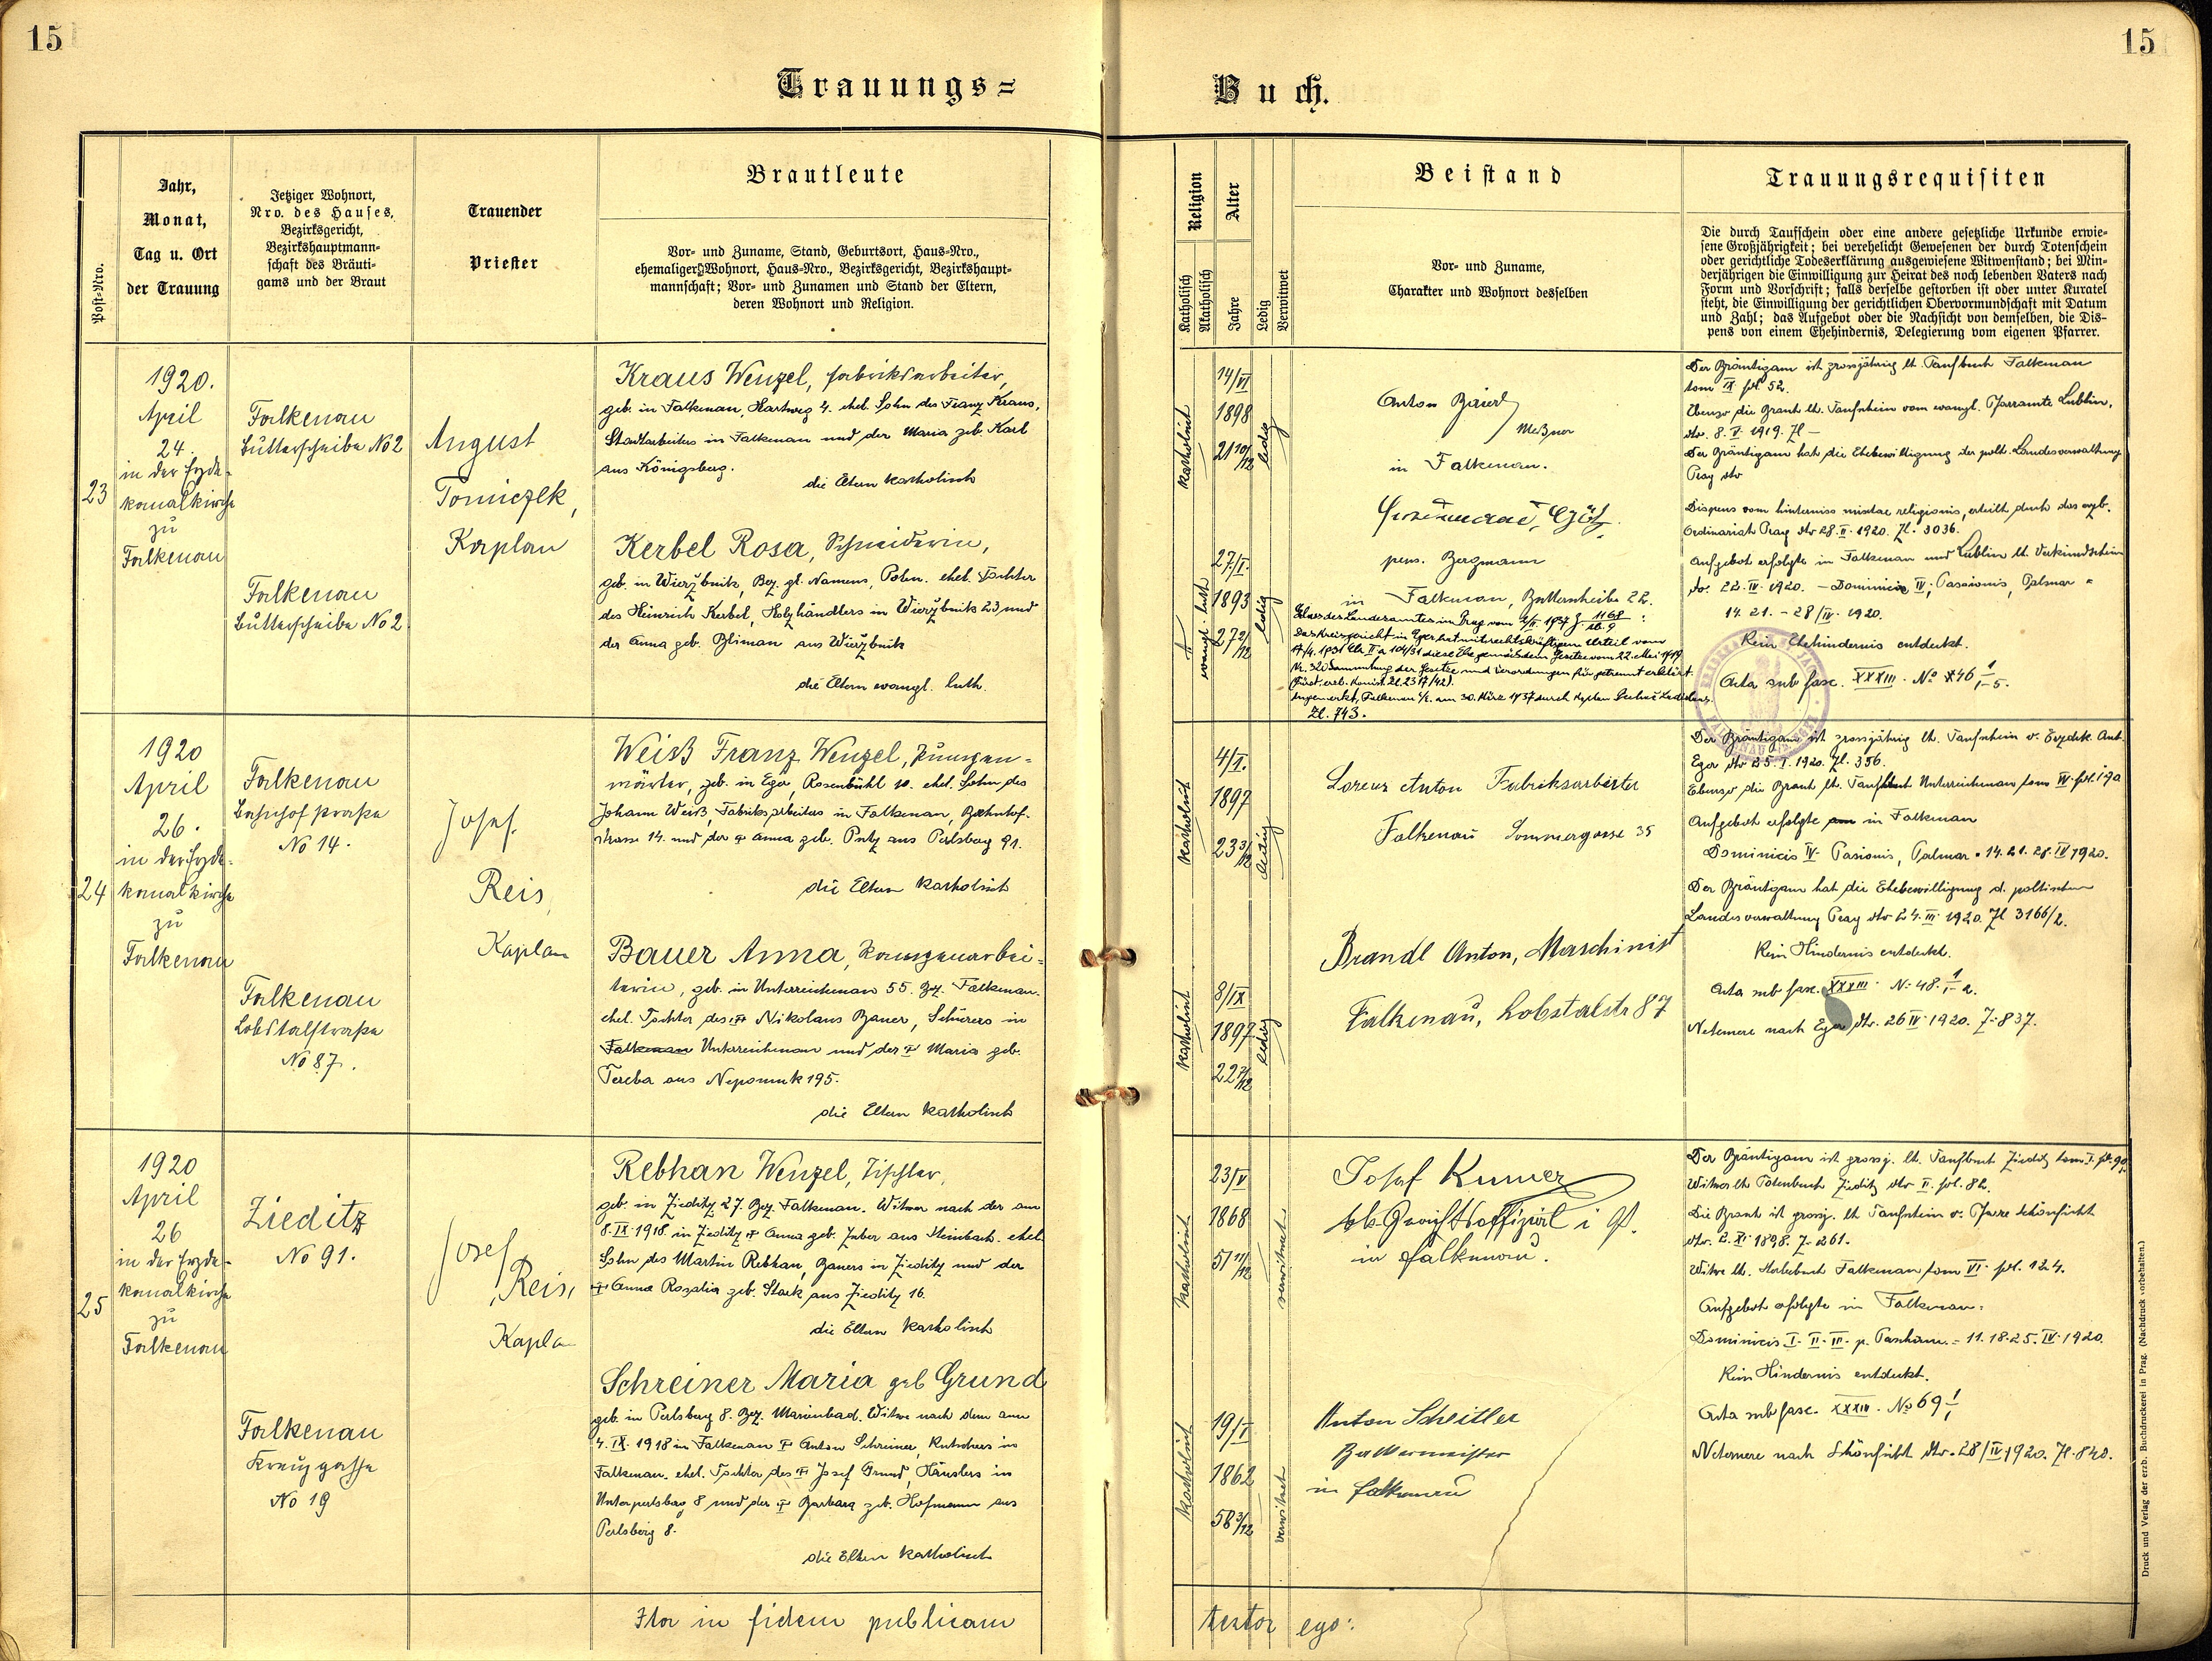 15
15
Trauungs=
Buch.
Post-Nro.
Jahr,
Monat,
Tag u. Ort
der Trauung
Jetziger Wohnort,
Nro. des Hauses,
Bezirksgericht,
Bezirkshauptmann-
schaft des Bräuti-
gams und der Braut
Trauender
Priester
Brautleute
Vor- und Zuname, Stand, Geburtsort, Haus-Nro.,
ehemaliger Wohnort, Haus-Nro., Bezirksgericht, Bezirkshaupt-
mannschaft; Vor- und Zunamen und Stand der Eltern,
deren Wohnort und Religion.
Religion
Katholisch
Akatholisch
Alter
Jahre
Ledig
Verwitwet
Beistand
Vor- und Zuname,
Charakter und Wohnort desselben
Trauungsrequisiten
Die durch Taufschein oder eine andere gesetzliche Urkunde erwie-
sene Großjährigkeit; bei verehelicht Gewesenen der durch Totenschein
oder gerichtliche Todeserklärung ausgewiesene Witwenstand; bei Min-
derjährigen die Einwilligung zur Heirat des noch lebenden Vaters nach
Form und Vorschrift; falls derselbe gestorben ist oder unter Kuratel
steht, die Einwilligung der gerichtlichen Obervormundschaft mit Datum
und Zahl; das Aufgebot oder die Nachsicht von demselben, die Dis-
pens von einem Ehehindernis, Delegierung vom eigenen Pfarrer.
23
1920.
April
24.
in der Erzde-
kanalkirche
zu
Falkenau
Falkenau
Butterscheibe No 2
Falkenau
Butterscheibe No 2
August
Tomiczek,
Kaplan
Kraus Wenzel, Fabriksarbeiter,
geb. in Falkenau, Hartweg 4. ehel. Sohn des Franz Kraus,
Stadtarbeiters in Falkenau und der Maria geb. Karl
aus Königsberg.
die Eltern katholisch
Kerbel Rosa, Schneiderin,
geb. in Wierzbnik, Bez. gl. Namens, Polen. ehel. Tochter
des Heinrich Kerbel, Holzhändlers in Wierzbnik 23 und
der Anna geb. Bliman aus Wierzbnik
die Eltern evangl. luth.
katholisch
14/VI
1898
21 10/12
ledig
evangl. luth
27/I.
1893
27 2/12
ledig
Anton Baierl
Meßner
in Falkenau.
Götz
pens. Bergmann
in Falkenau, Butterscheibe 22.
Erlass des Landesamtes in Prag vom
Das Kreisgericht in Eger hat mit rechtskräftigem Urteil vom
17/4. 1931 Ck II a 104/31 diese Ehe gemäss dem Gesetze vom 22. Mai 1919
Nr. 320 Sammlung der Gesetze und Verordnungen für getrennt erklärt
angemerkt, Falkenau a/E. am 30. März 1937 durch Kaplan
Zl. 743.
Der Bräutigam ist grossjährig lt. Taufbuch Falkenau
tom IX fol 52.
Ebenso die Braut lt. Taufschein vom evangl. Pfarramte Lublin,
dto. 8. V. 1919. Zl —
Der Bräutigam hat die Ehebewilligung der polit. Landesverwaltung
Prag dto
Dispens vom hinterniss mixtae religionis, erteilt durch das erzb.
Ordinariat Prag dto 28. II. 1920. Zl. 3036.
Aufgebot erfolgte in Falkenau und Lublin lt. Verkündschein
do. 22. IV. 1920. — Dominicis IV, Passionis, Palmar =
14. 21. – 28/IV. 1920.
Kein Ehehindernis entdeckt.
Acta sub fasc. XXXIII. No 46 1/1-5.
24
1920
April
26.
in der Erzde-
kanalkirche
zu
Falkenau
Falkenau
Bahnhofstraße
No 14.
Falkenau
Lobstalstraße
No 87.
Josef
Reis,
Kaplan
Weiß Franz Wenzel, Pumpen-
wärter, geb. in Eger, Rosenbühl 10. ehel. Sohn des
Johann Weiß, Fabriksarbeiters in Falkenau, Bahnhof-
strasse 14. und der † Anna geb. Putz aus Perlsberg 91.
die Eltern katholisch
Bauer Anna,
terin, geb. in Unterreichenau 55. Bez. Falkenau.
ehel. Tochter des † Nikolaus Bauer, Schürers in
Falkenau Unterreichenau und der † Maria geb.
Tereba aus Nepomuk 195.
die Eltern katholisch
katholisch
4/I.
1897
23 3/12
ledig
katholisch
8/IX
1897
22 7/12
ledig
Lorenz Anton Fabriksarbeiter
Falkenau Sommergasse 35
Brandl Anton, Maschinist
Falkenau, Lobstalstr 87
Der Bräutigam ist grossjährig lt. Taufschein v. Erzdek. Amt
Eger dto 25. I. 1920. Zl. 356.
Ebenso die Braut lt. Taufbuch Unterreichenau tom VI. fol. 190
Aufgebot erfolgte in Falkenau
Dominicis IV. Pasionis, Palmar = 14. 21. 28. IV 1920.
Der Bräutigam hat die Ehebewilligung d. politischen
Landesverwaltung Prag dto 24. III. 1920. Zl 3166/2.
Kein Hindernis entdeckt.
Acta sub fasc. XXXIII. No 48. 1/1-2.
Netemere nach Eger dto. 26 IV 1920. Z. 837.
25
1920
April
26
in der Erzde-
kanalkirche
zu
Falkenau
Zieditz
No 91.
Falkenau
Kreuzgasse
No 19
Josef
Reis,
Kaplan
Rebhan Wenzel, Tischler,
geb. in Zieditz 27. Bez. Falkenau. Witwer nach der am
8. IX 1918. in Zieditz † Anna geb. Zuber aus Steinbach. ehel.
Sohn des Martin Rebhan, Bauers in Zieditz und der
† Anna Rosalia geb. Stark aus Zieditz 16.
die Eltern katholisch
Schreiner Maria geb Grund
geb. in Perlsberg 8. Bez. Marienbad. Witwe nach dem am
4. IX. 1918 in Falkenau † Anton Schreiner, Kutschers in
Falkenau. ehel. Tochter des † Josef Grund, Häuslers in
Unterperlsberg 8 und der † Barbara geb. Hofmann aus
Perlsberg 8.
die Eltern katholisch
katholisch
23/V
1868
51 11/12
verwitwet
katholisch
19/I
1862
58 3/12
verwitwet
Josef
in Falkenau.
Anton Scheitler
Bäckermeister
in Falkenau
Der Bräutigam ist grossj. lt. Taufbuch Zieditz tom I. fol. 90.
Witwer lt. Totenbuch Zieditz dto II. fol. 82.
Die Braut ist grossj. lt Taufschein v. Pfarre Schönficht
dto. 2. XI. 1898. Z. 261.
Witwe lt. Sterbebuch Falkenau tom VI. fol. 124.
Aufgebot erfolgte in Falkenau:
Dominicis I. II. III. p. Pascham. = 11. 18. 25. IV. 1920.
Kein Hindernis entdeckt.
Acta sub fasc. XXXIV. No 69 1/1
Netemere nach Schönficht dto. 28/IV 1920. Zl. 842.
Ita in fidem publicam
testor ego:
Druck und Verlag der erzb. Buchdruckerei in Prag. (Nachdruck vorbehalten.)